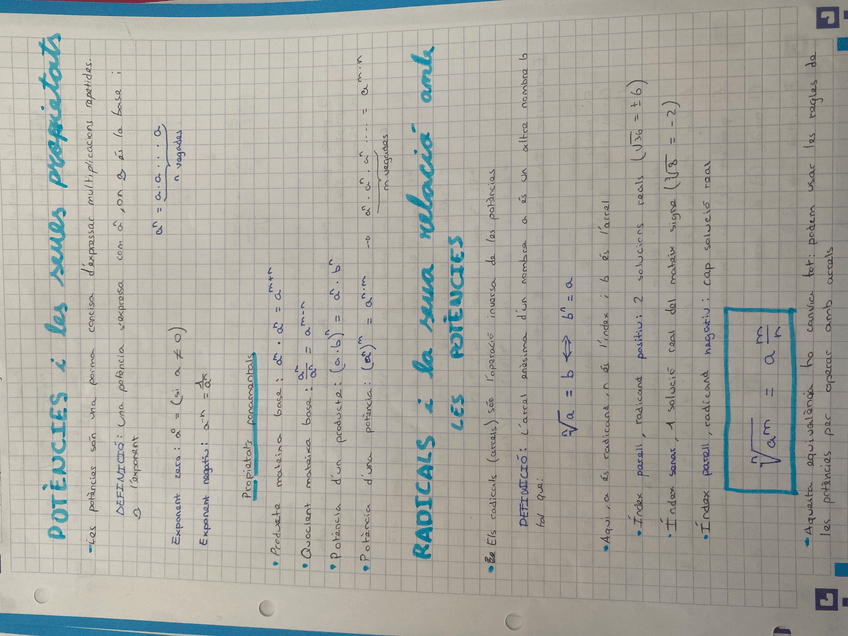 POTÈNCIES i les seues propietats
-Les potències són una forma concisa d'expressar multiplicacions repetides.
DEFINICIÓ: Una potència s'expressa com aⁿ, on a és la base i
n l'exponent
aⁿ = a·a·...·a
n vegades
Exponent zero: a⁰ = (si a ≠ 0)
Exponent negatiu: a⁻ⁿ = 1/aⁿ
Propietats fonamentals
• Producte mateixa base: aᵐ · aⁿ = aᵐ⁺ⁿ
• Quocient mateixa base: aᵐ/aⁿ = aᵐ⁻ⁿ
• Potència d'un producte: (a·b)ⁿ = aⁿ · bⁿ
• Potència d'una potència: (aⁿ)ᵐ = aⁿ·ᵐ → aⁿ·aⁿ·aⁿ·... = aᵐ·ⁿ
m vegades
RADICALS i la seua relació amb
LES POTÈNCIES
• Els radicals (arrels) són l'operació inversa de les potències
DEFINICIÓ: L'arrel enèsima d'un nombre a és un altre nombre b
tal que:
ⁿ√a = b ⟺ bⁿ = a
• Aquí, a és radicand, n és l'índex i b és l'arrel
• Índex parell, radicand positiu: 2 solucions reals (√36 = ±6)
• Índex senar, 1 solució real del mateix signe (∛8 = -2)
• Índex parell, radicand negatiu: cap solució real
ⁿ√aᵐ = a^(m/n)
- Aquesta equivalència ho canvia tot: podem usar les regles de
les potències per operar amb arrels